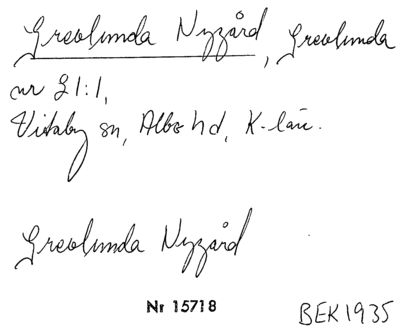 Grevlunda Nygård, Grevlunda
nr 21:1,
Vitaby sn, Albo hd, K-län.
Grevlunda Nygård
Nr 15718
BEK1935